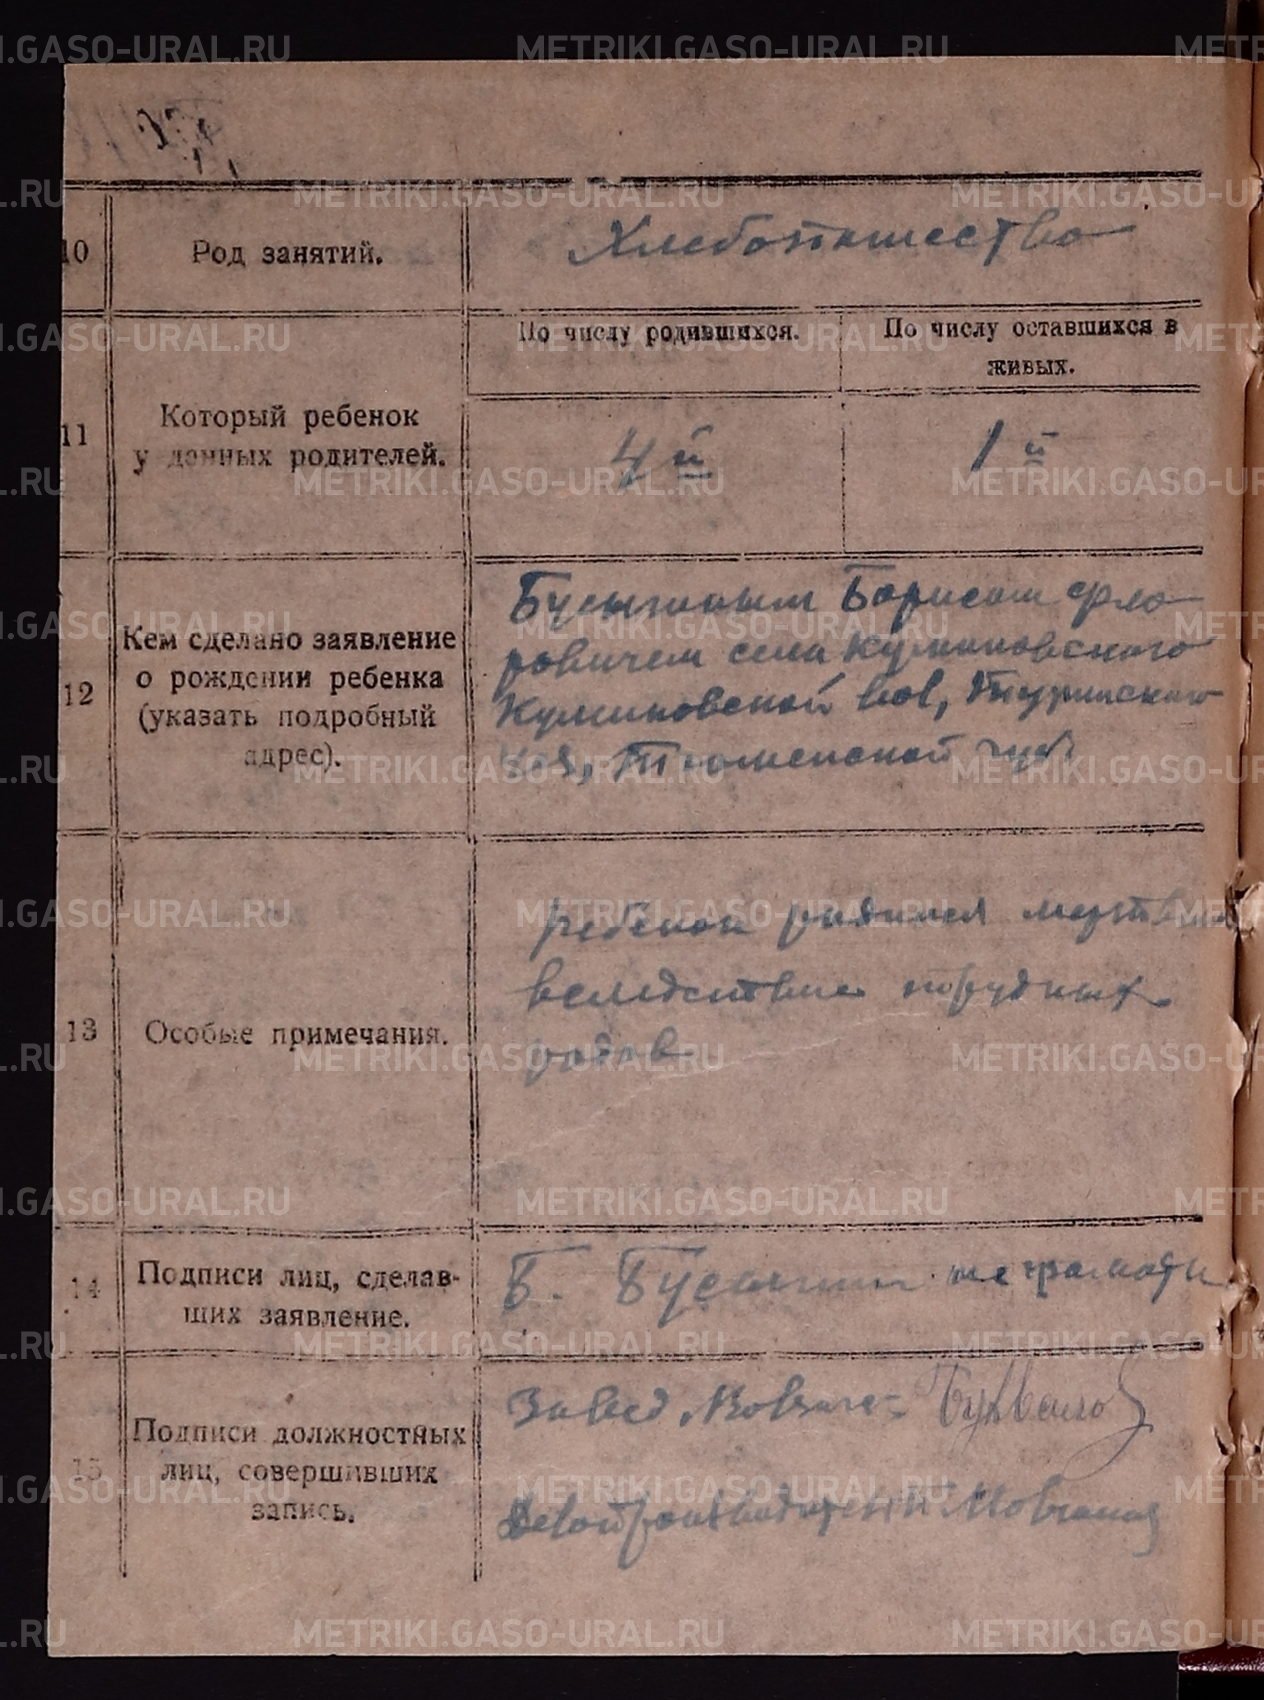 METRIKI.GASO-URAL.RU
10 Род занятий. Хлебопашество
По числу родившихся. По числу оставшихся в
живых.
11 Который ребенок
у данных родителей. 4й 1й
12 Кем сделано заявление
о рождении ребенка
(указать подробный
адрес).
Бусыгиным Борисом Фло
ровичем села Куминовского
Куминовской вол, Туринского
уез, Тюменской губ
13 Особые примечания.
ребенок родился мертвым
вследствие трудных
родов
14 Подписи лиц, сделав-
ших заявление.
Б. Бусыгин неграмотн
15 Подписи должностных
лиц, совершивших
запись.
Завед
Делопроизводитель